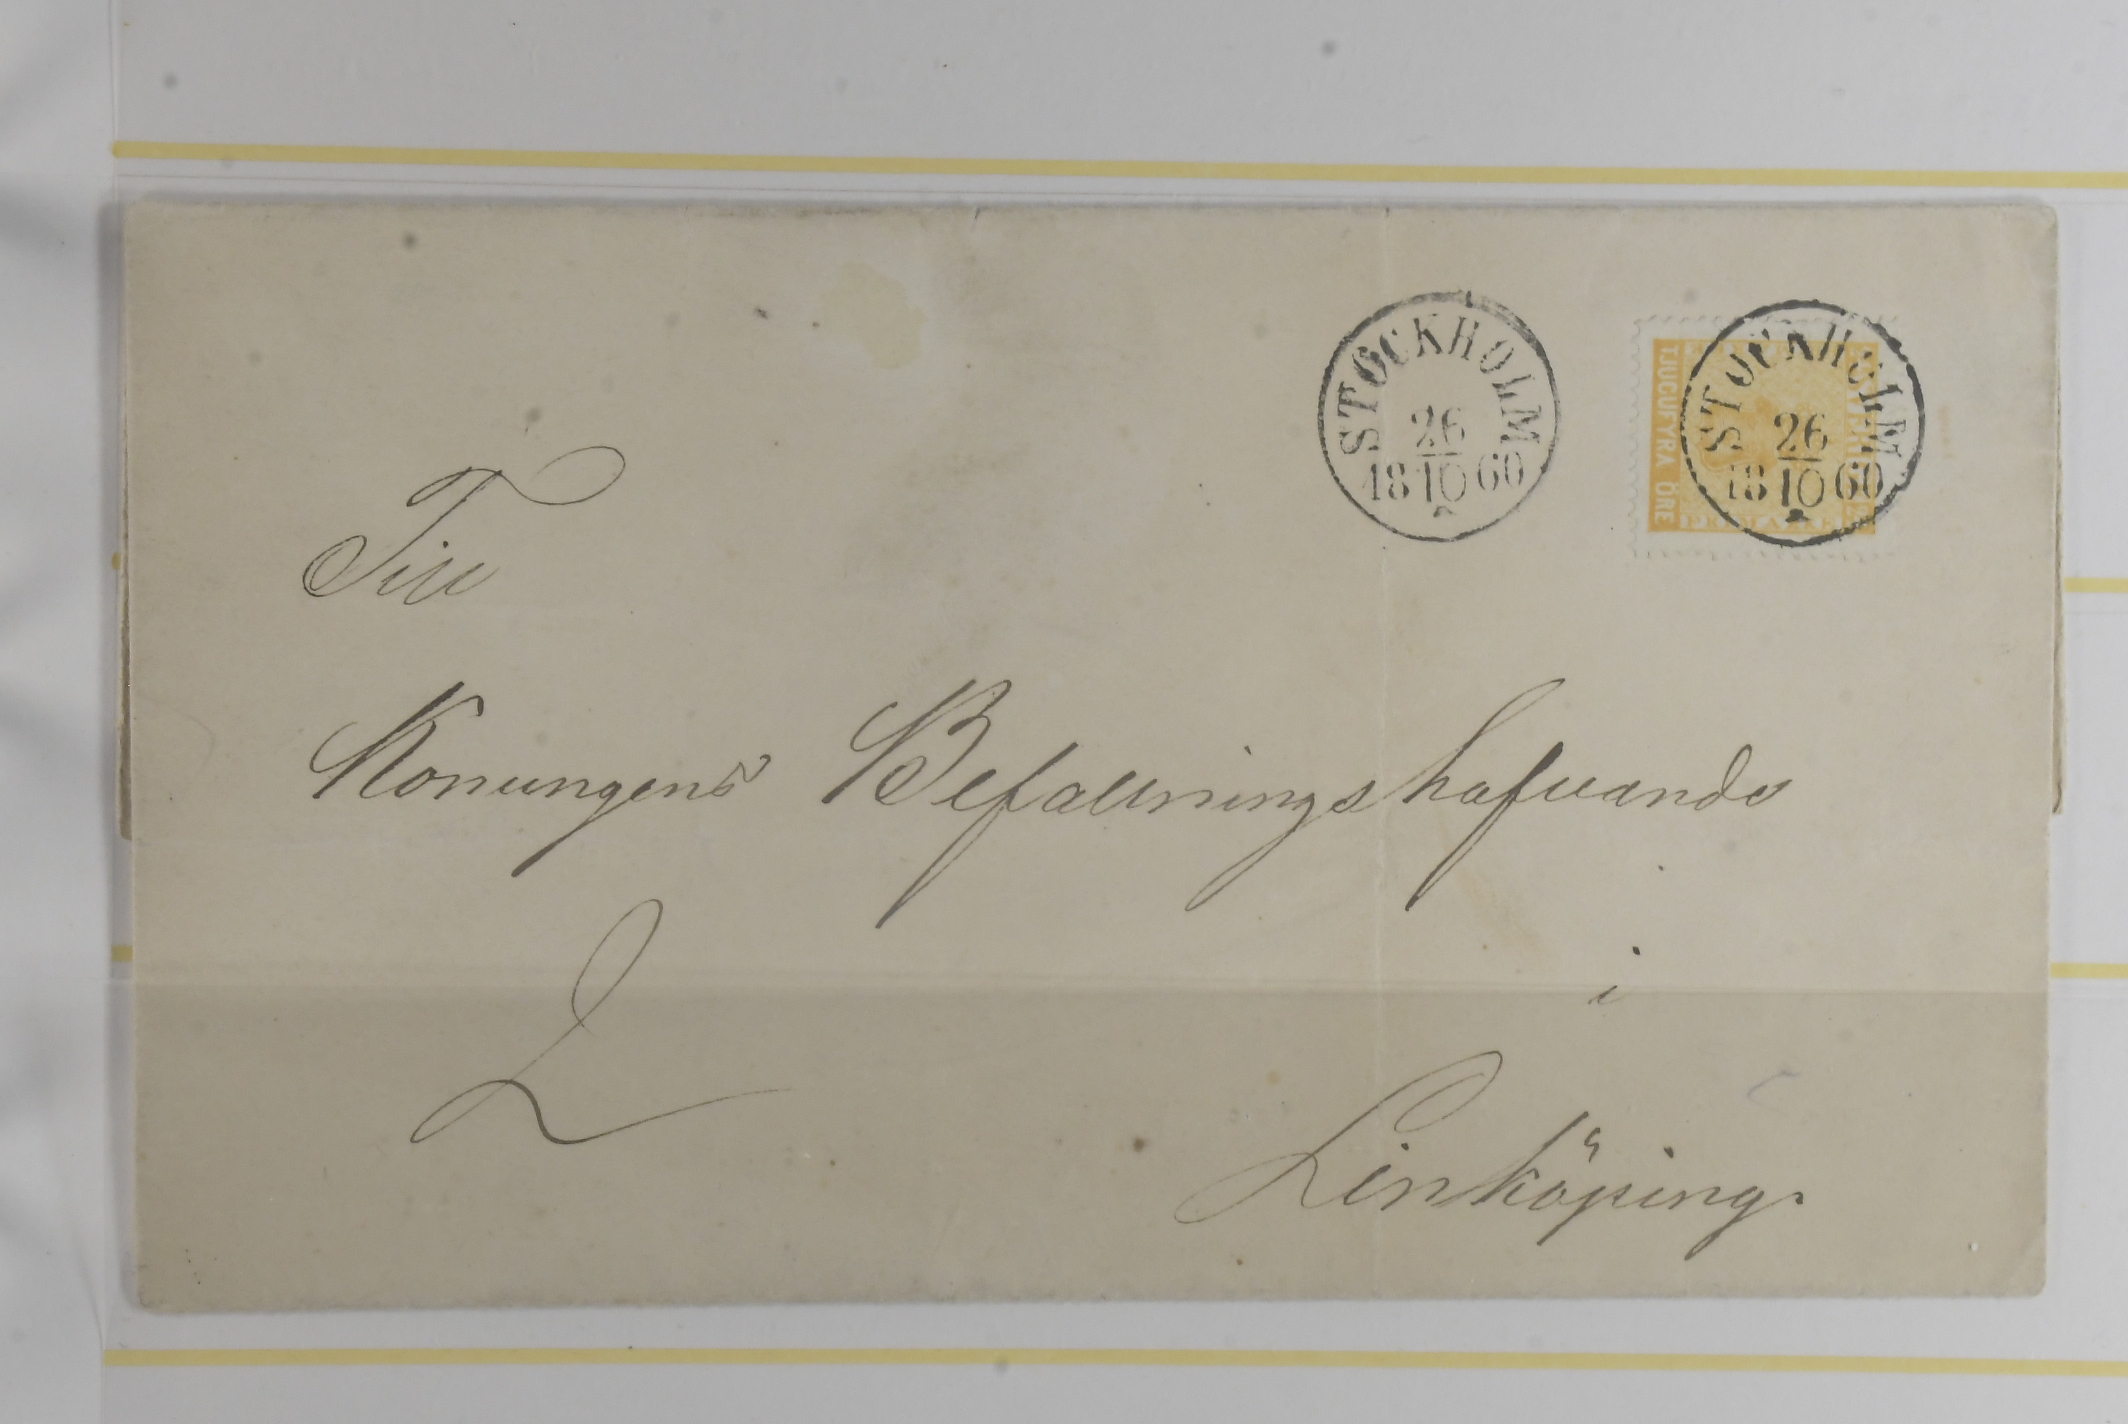 STOCKHOLM
26
18 10 60
STOCKHOLM
26
18 10 60
TJUGUFYRA ÖRE
FRIMÄRKE
Till
Konungens Befallningshafvande
2
i
Linköping.